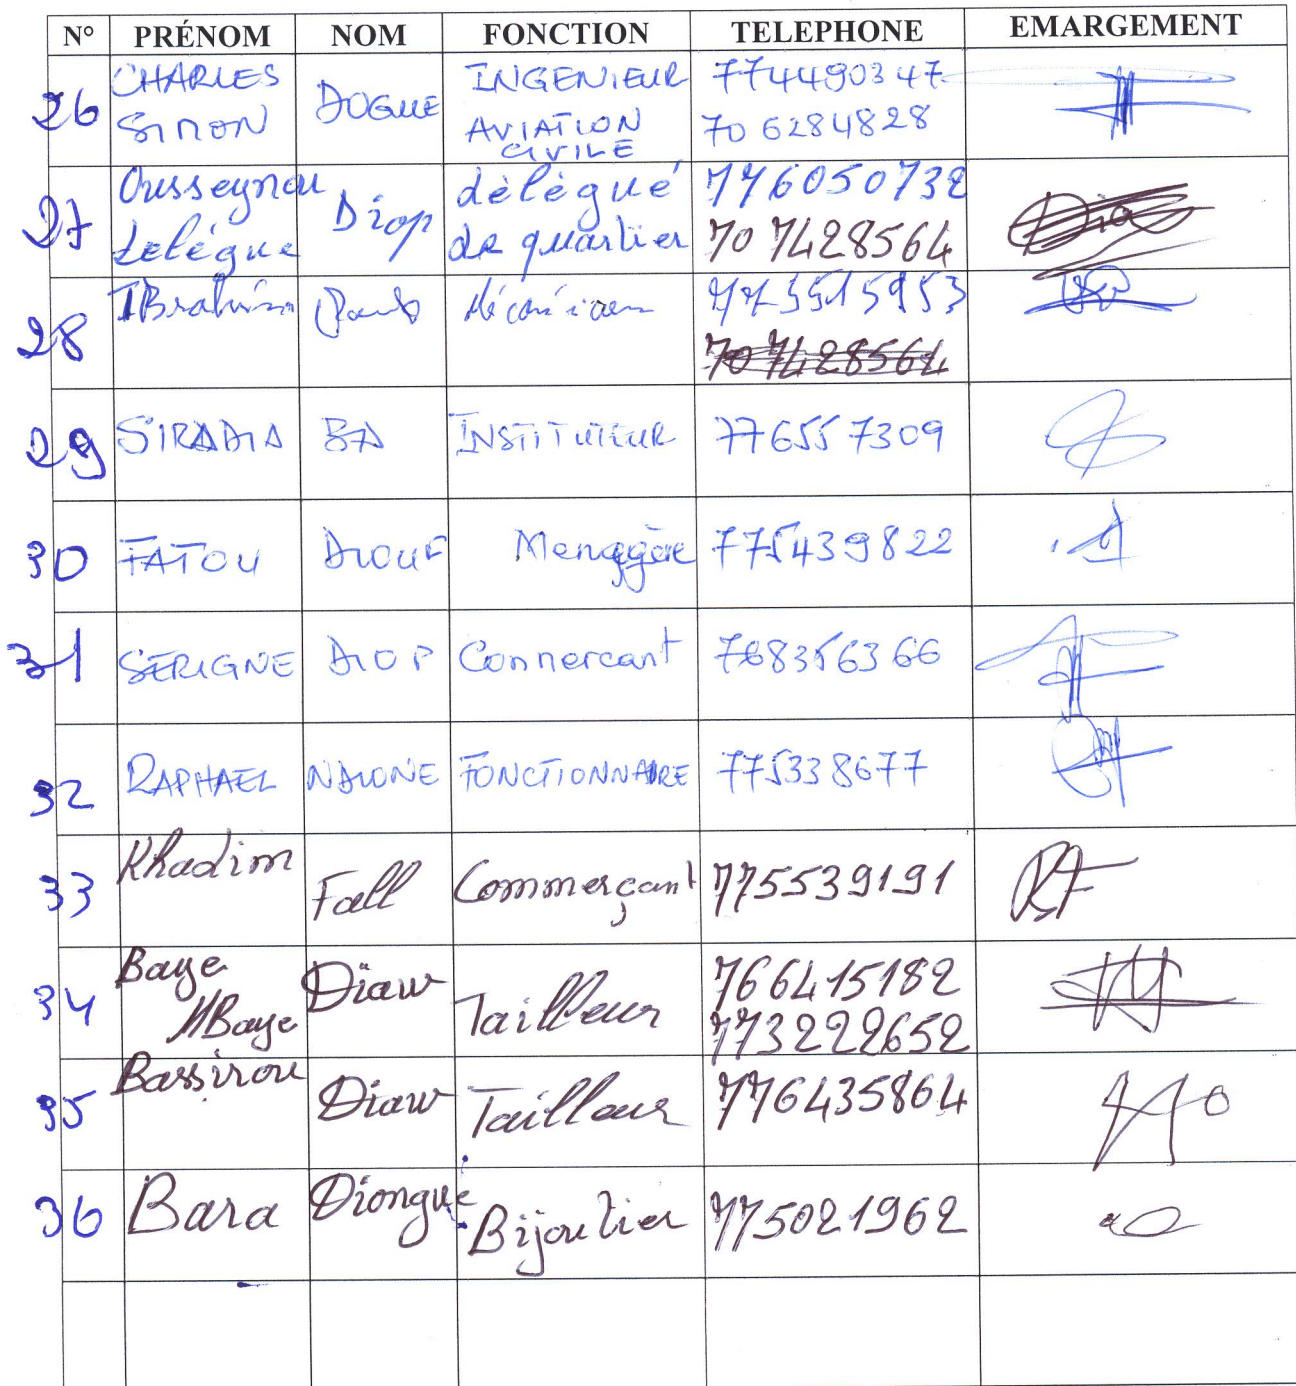 N° PRÉNOM NOM FONCTION TELEPHONE EMARGEMENT
26 CHARLES SIMON DOGUE INGENIEUR AVIATION CIVILE 774490347 706284828
27 Ousseynou delégue Diop délégué de quartier 776050732 707428564
28 IBrahima 775515953 707428564
29 SIRADIA BA INSTITUTEUR 776557309
30 FATOU DIOUF Menagère 775439822
31 SERIGNE DIOP Connercant 768356366
32 RAPHAEL NDIONE FONCTIONNAIRE 775338677
33 Khadim Fall Commerçant 775539191
34 Baye MBaye Diaw Tailleur 766415182 773222652
35 Bassirou Diaw Tailleur 776435864
36 Bara Diongue Bijoutier 775021962